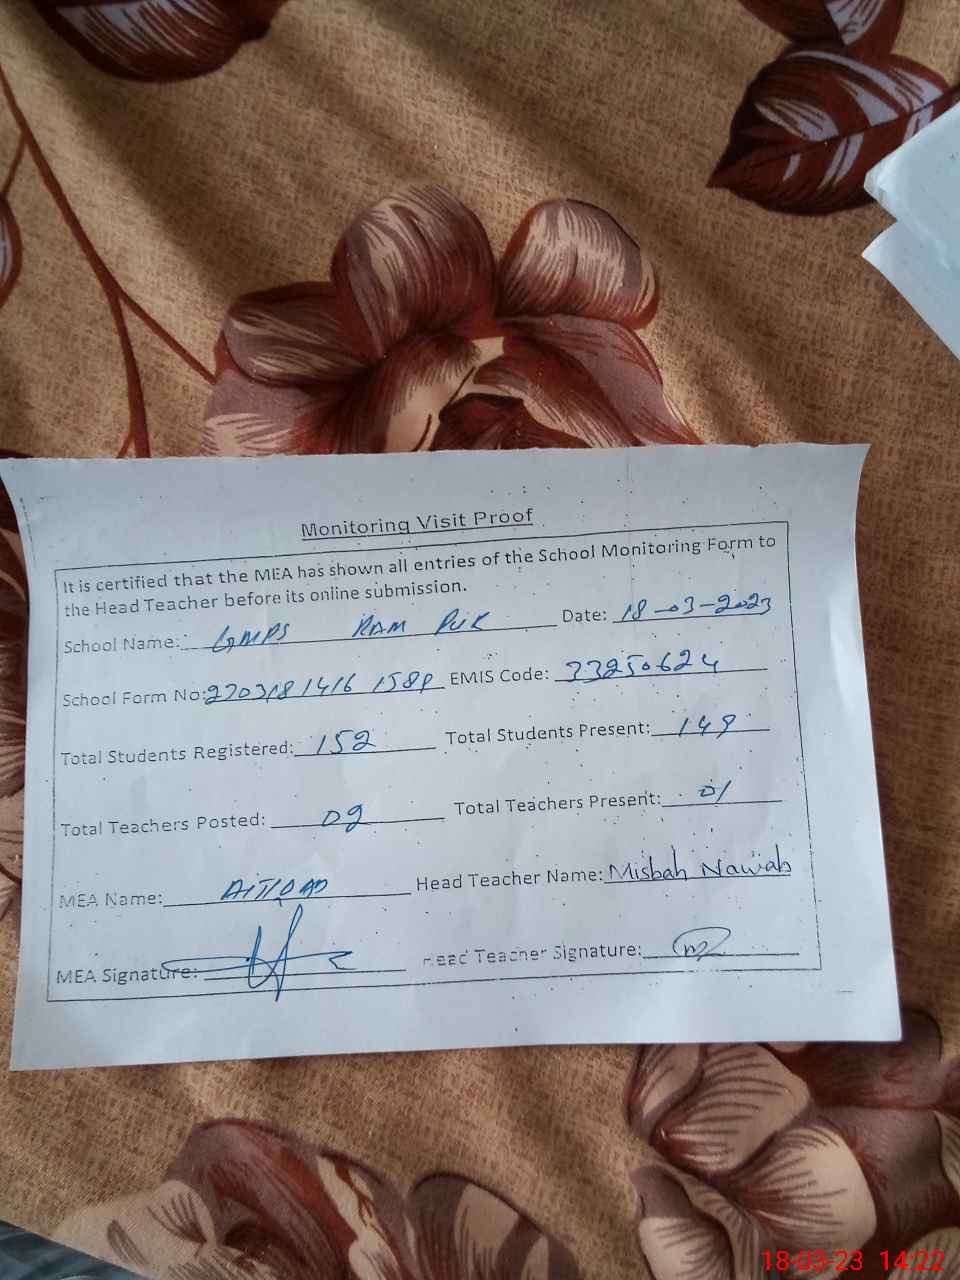 Monitoring Visit Proof
It is certified that the MEA has shown all entries of the School Monitoring Form to
the Head Teacher before its online submission.
School Name: GMPS RAM PUR Date: 18-03-2023
School Form No: EMIS Code: 33250624
Total Students Registered: 152 Total Students Present: 149
Total Teachers Posted: 02 Total Teachers Present: 01
MEA Name: Head Teacher Name: Misbah Nawab
MEA Signature: Head Teacher Signature:
18-03-23 14:22